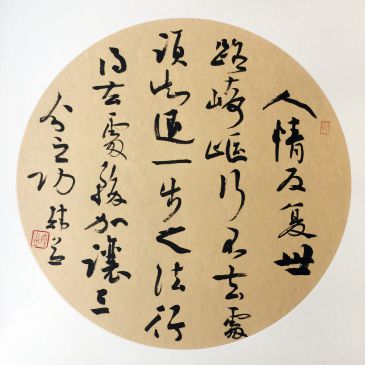 人情反复世
路崎嶇行不去處
須知退一步之法行
得去處務加讓三
分之功